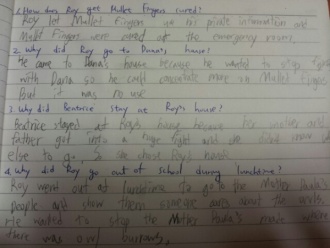 1. How does Roy get Mullet Fingers cured?
Roy let Mullet Fingers use his private information and
Mullet Fingers were cured at the emergency room.
2. Why did Roy go to Dana's house?
He came to Dana's house because he wanted to stop fights
with Dana so he could concentrate more on Mullet Fingers
But it was no use.
3. Why did Beatrice stay at Roy's house?
Beatrice stayed at Roy's house because her mother and
father got into a huge fight and she didn't know where
else to go, so she chose Roy's house.
4. Why did Roy go out of school during lunchtime?
Roy went out at lunchtime to go to the Mother Paula's
people and show them about the owls.
He wanted to stop the Mother Paula's made
there was owl burrows,